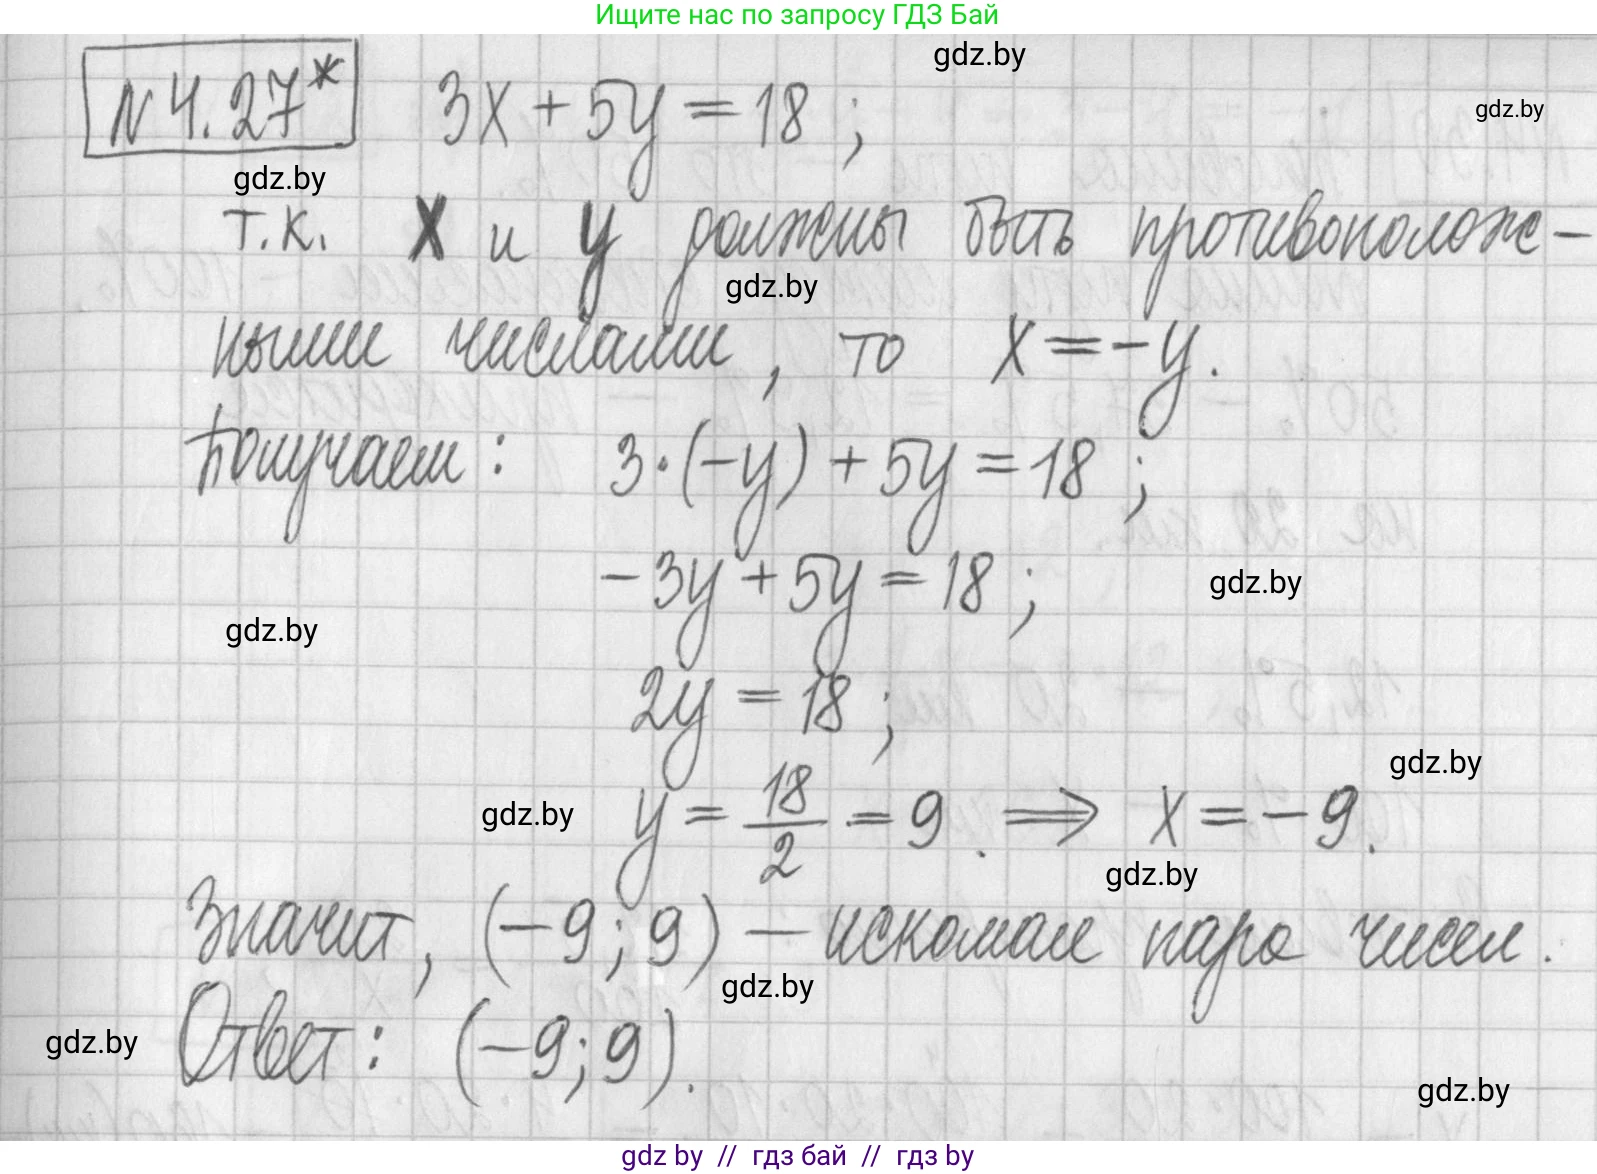 Ищите нас по запросу ГДЗ Бай
gdz.by
N 4.27* 3x + 5y = 18 ;
gdz.by
gdz.by
т.к. x и y должны быть противополож-
gdz.by
ными числами, то x = -y.
Получаем: 3·(-y) + 5y = 18 ;
-3y + 5y = 18 ;
gdz.by
gdz.by
2y = 18 ;
gdz.by
gdz.by
y = 18/2 = 9. ⇒ x = -9.
gdz.by
Значит, (-9; 9) — искомая пара чисел.
gdz.by
Ответ: (-9; 9).
gdz.by
gdz.by
gdz by // гдз бай // гдз by